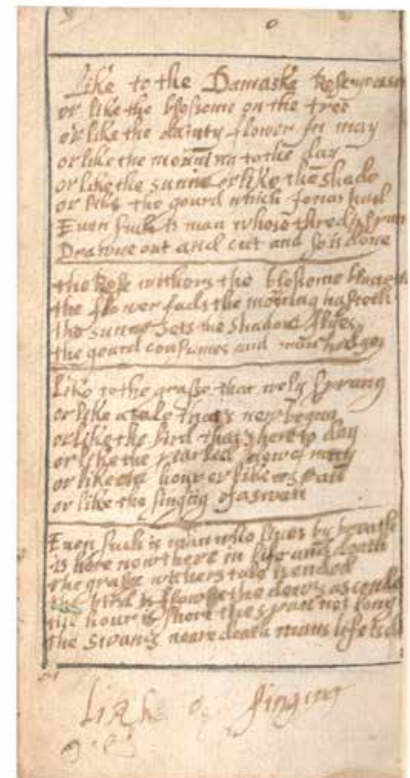 Like to the Damaske Rose you see
or like the blossome on the tree
or like the dainty flower in may
or like the morning to the day
or like the sunne or like the shade
or like the gourd which Jonas had
Even such is man whose thred is spun
Drawne out and cut and so is done
the Rose withers the blossome blasteth
the flower fads the morning hasteth
the sunne sets the shadow flyes
the gourd consumes and man he dyes
Like to the grasse that newly sprung
or like a tale that's new begun
or like the bird that's here to day
or like the pearled dew of may
or like an hour or like a span
or like the singing of a swan
Even such is man who lives by breath
is here now there in life and death
the grasse withers tale is ended
the bird is flowne the dew's ascended
the hour is short the span not long
the swan's neare death mans life is
Like singing